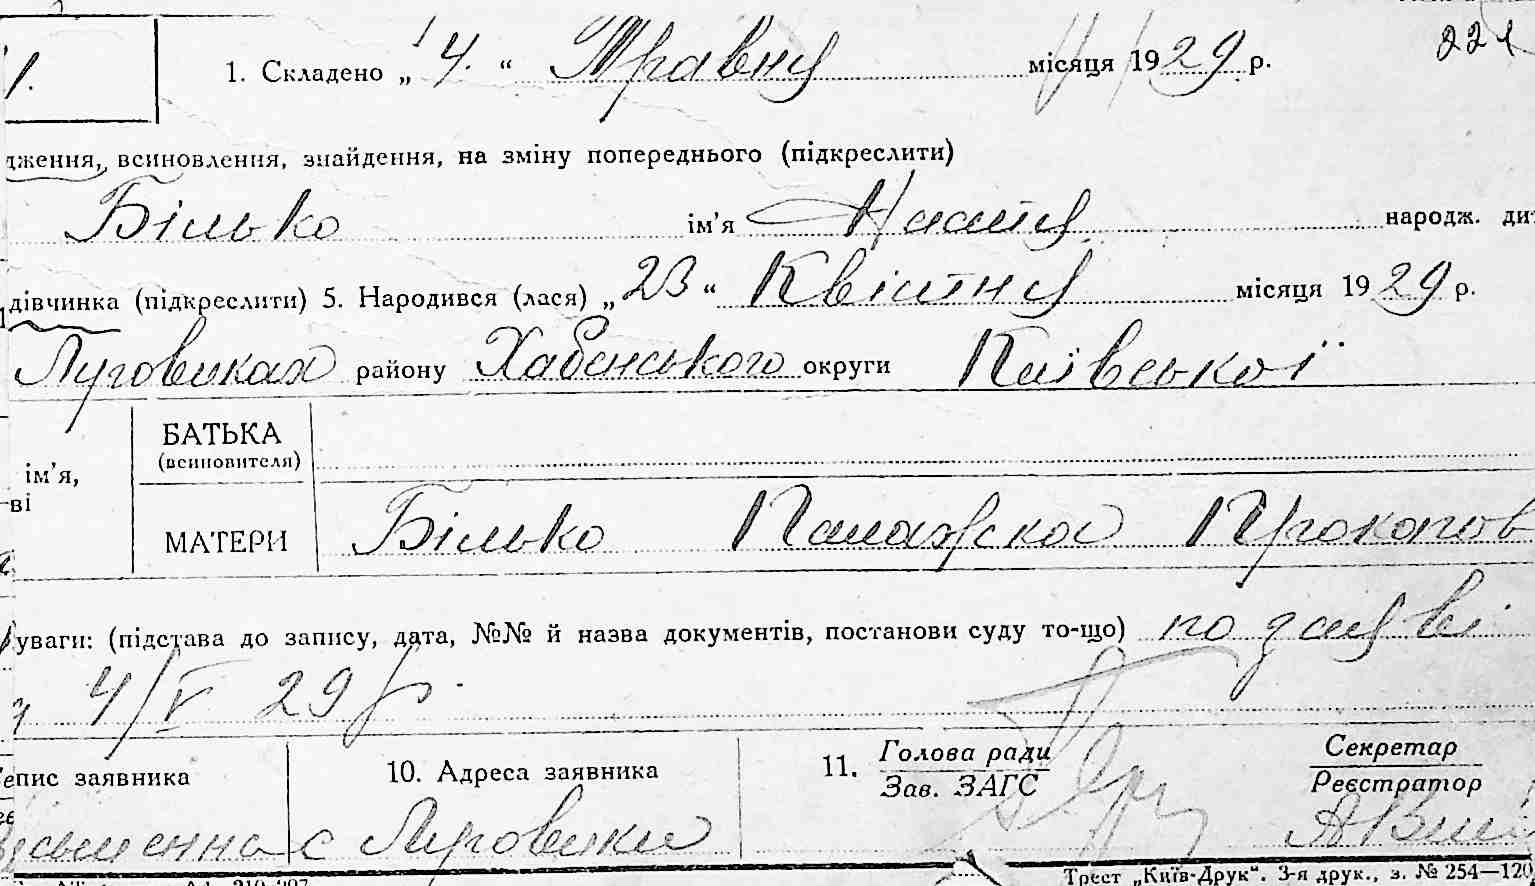 1. 1. Складено „ 4. “ Травня місяця 1929 р. 221
дження, всиновлення, знайдення, на зміну попереднього (підкреслити)
Білько ім'я Настя народж. дит
дівчинка (підкреслити) 5. Народився (лася) „ 23 “ Квітня місяця 1929 р.
Луговиках району Хабенського округи Київської
БАТЬКА
(всиновителя)
ім'я,
ві
МАТЕРИ Білько Палажка Прокопов
уваги: (підстава до запису, дата, №№ й назва документів, постанови суду то-що) по заяві
4/V 29 р.
епис заявника 10. Адреса заявника 11. Голова ради Секретар
Зав. ЗАГС Реєстратор
с Луговики
Трест „Київ-Друк“. 3-я друк., з. № 254—120